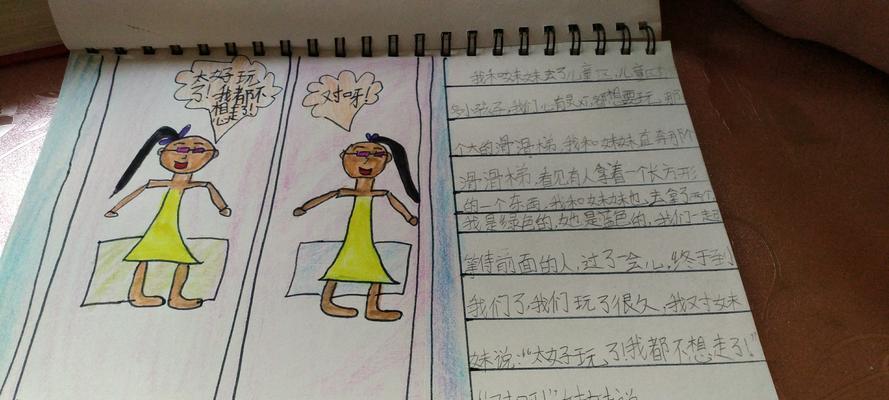 太好玩
了！我都不
想走了！
对呀！
我和妹妹去了儿童区，儿童区
多小孩子，我们
个大的滑滑梯，我和妹妹直奔那个
滑滑梯，看见有人拿着一个长方形
的一个东西，我和妹妹也去拿了两个
我是绿色的，她是蓝色的，我们一起
等待前面的人，过了一会儿，终于到
我们了，我们玩了很久，我对妹
妹说：“太好玩了！我都不想走了！”